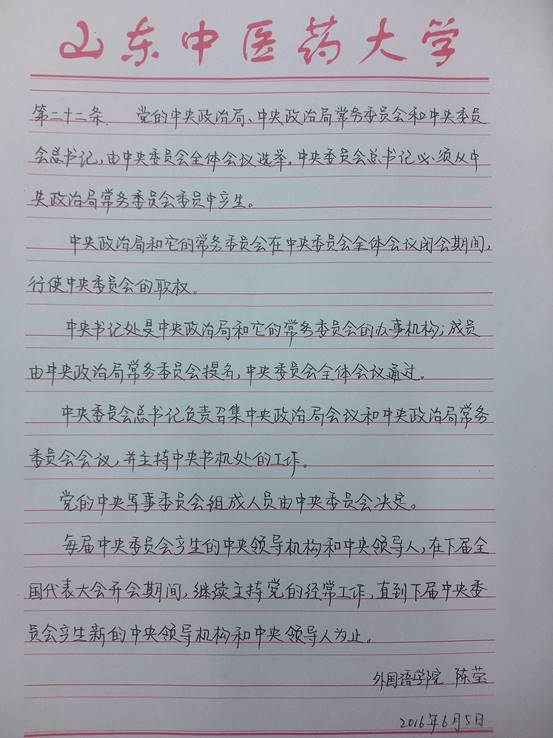 山东中医药大学
第二十二条 党的中央政治局、中央政治局常务委员会和中央委员
会总书记,由中央委员会全体会议选举。中央委员会总书记必须从中
央政治局常务委员会委员中产生。
中央政治局和它的常务委员会在中央委员会全体会议闭会期间,
行使中央委员会的职权。
中央书记处是中央政治局和它的常务委员会的办事机构;成员
由中央政治局常务委员会提名,中央委员会全体会议通过。
中央委员会总书记负责召集中央政治局会议和中央政治局常务
委员会会议,并主持中央书机处的工作。
党的中央军事委员会组成人员由中央委员会决定。
每届中央委员会产生的中央领导机构和中央领导人,在下届全
国代表大会开会期间,继续主持党的经常工作,直到下届中央委
员会产生新的中央领导机构和中央领导人为止。
外国语学院 陈莹
2016年6月5日